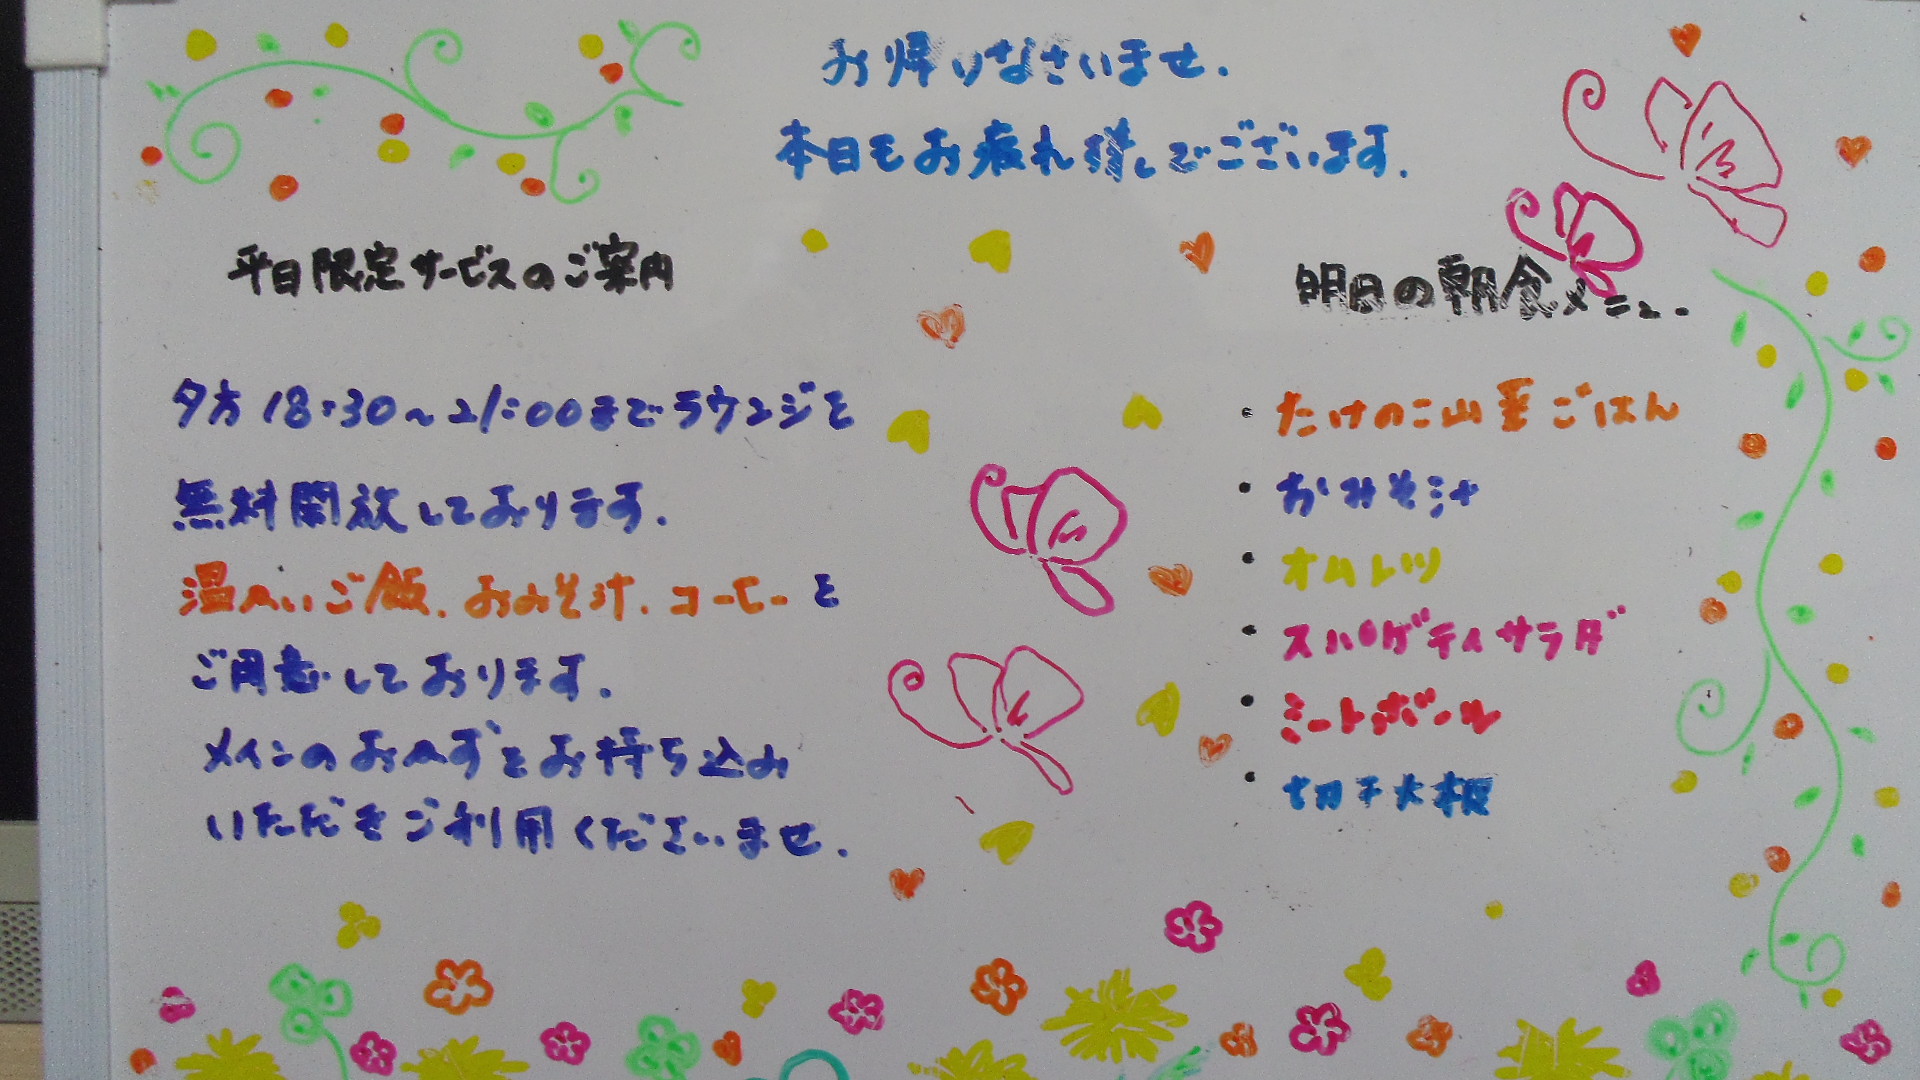 お帰りなさいませ.
本日もお疲れ様でございます.
平日限定サービスのご案内
夕方18:30～21:00までラウンジを
無料開放しております.
温かいご飯.おみそ汁.コーヒーを
ご用意しております.
メインのおかずをお持ち込み
いただきご利用くださいませ.
明日の朝食メニュー
・たけのこ山菜ごはん
・おみそ汁
・オムレツ
・スパゲティサラダ
・ミートボール
・切干大根